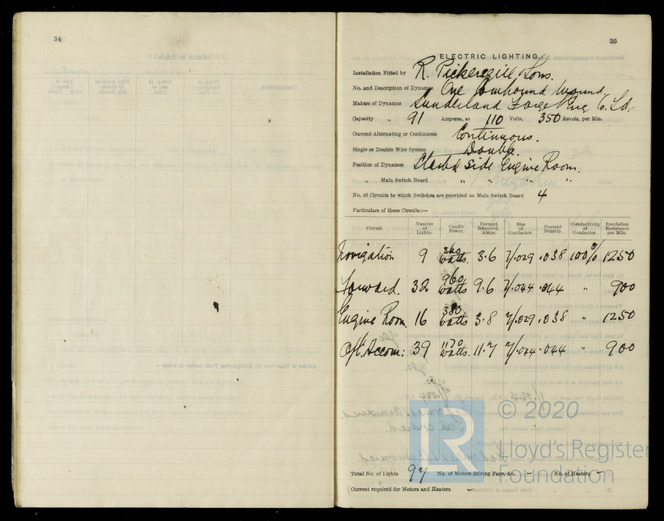 34
35
ELECTRIC LIGHTING
Installation Fitted by R. Pickersgill & Sons.
No. and Description of Dynamos One Compound Wound
Makers of Dynamos Sunderland Forge & Eng Co. Ltd.
Capacity " 91 Amperes, at 110 Volts, 350 Revols. per Min.
Current Alternating or Continuous Continuous.
Single or Double Wire System Double.
Position of Dynamos Starbd Side Engine Room.
" Main Switch Board " " " "
No. of Circuits to which Switches are provided on Main Switch Board 4
Particulars of these Circuits:—
Circuit. Number of Lights. Candle Power. Current Required. Amps. Size of Conductor. Current Density. Conductivity of Conductor. Insulation Resistance per Mile.
Navigation 9 360 watts. 3.6 7/.029 .038 100% 1250
Forward. 32 960 watts 9.6 7/.044 .044 " 900
Engine Room 16 380 watts 3.8 7/.029 .038 " 1250
Accom: 39 1170 watts. 11.7 .044 " 900
Total No. of Lights 97 No. of Motors driving Fans, &c. — No. of Heaters —
Current required for Motors and Heaters —
© 2020
LR
Lloyd's Register
Foundation